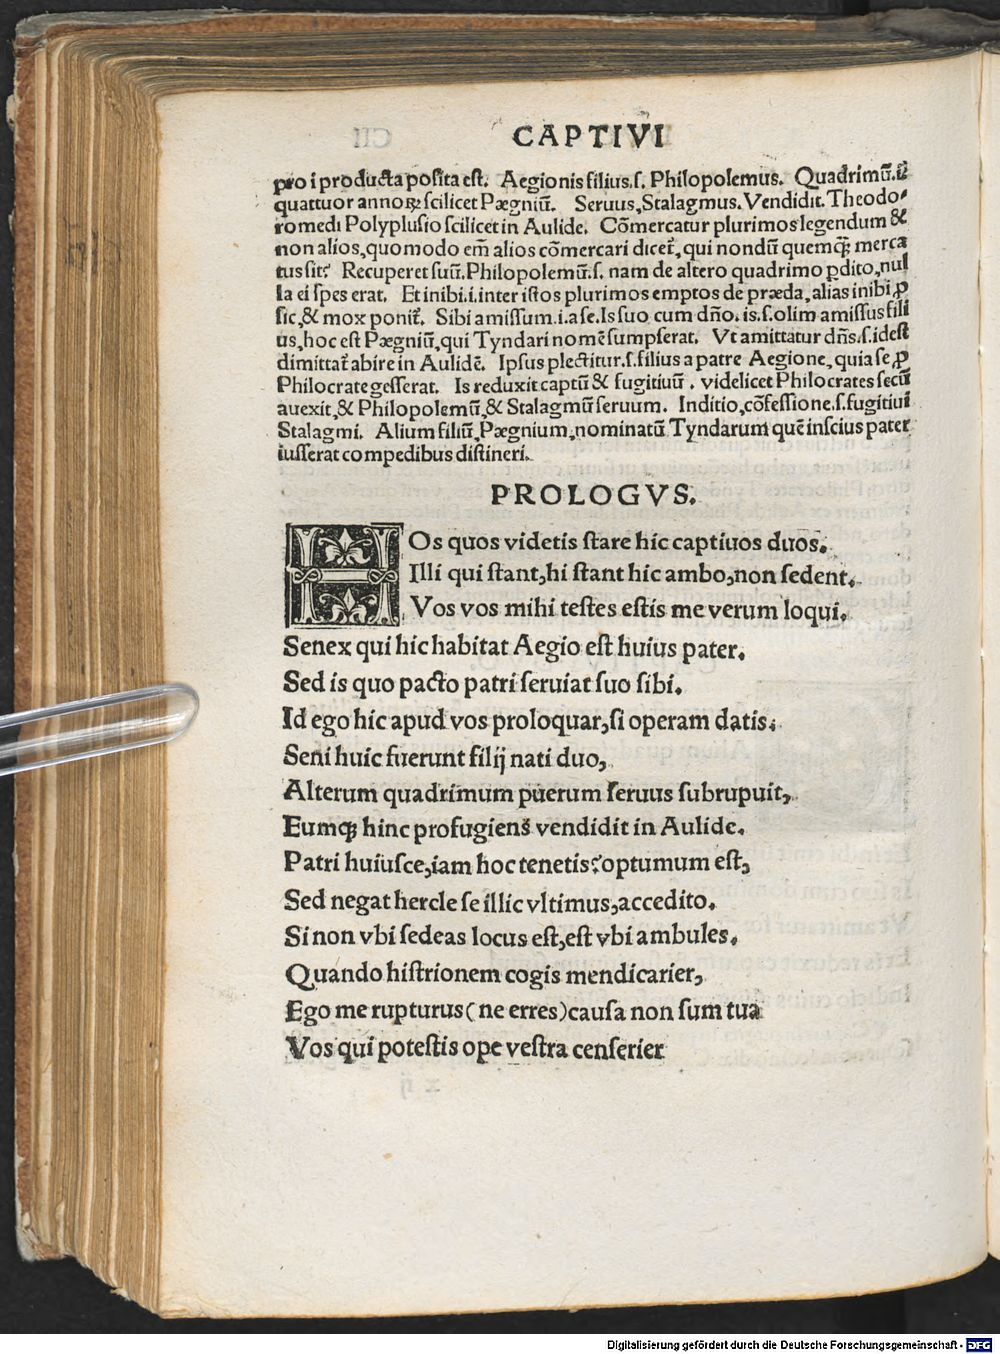 CAPTIVI
pro i producta posita est. Aegionis filius.s. Philopolemus. Quadrimũ.i.
quattuor annoꝝ scilicet Pægniũ. Seruus, Stalagmus. Vendidit. Theodo-
romedi Polyplusio scilicet in Aulide. Cõmercatur plurimos legendum &
non alios, quomodo em̃ alios cõmercari diceť, qui nondũ quemꝗ; merca
tus sit? Recuperet suũ. Philopolemũ.s. nam de altero quadrimo ꝑdito, nul
la ei spes erat. Et inibi.i.inter istos plurimos emptos de præda, alias inibi ꝑ
sic, & mox poniť. Sibi amissum.i.a se. Is suo cum dño.is.s.olim amissus fili
us, hoc est Pægniũ, qui Tyndari nomẽ sumpserat. Vt amittatur dñs.s.idest
dimittať abire in Aulidẽ. Ipsus plectitur.s.filius a patre Aegione, quia se ꝑ
Philocrate gesserat. Is reduxit captũ & fugitiuũ. videlicet Philocrates secũ
auexit, & Philopolemũ, & Stalagmũ seruum. Inditio, cõfessione.s.fugitiui
Stalagmi. Alium filiũ, Pægnium, nominatũ Tyndarum quẽ inscius pater
iusserat compedibus distineri.
PROLOGVS.
HOs quos videtis stare hic captiuos duos.
Illi qui stant, hi stant hic ambo, non sedent.
Vos vos mihi testes estis me verum loqui.
Senex qui hic habitat Aegio est huius pater.
Sed is quo pacto patri seruiat suo sibi.
Id ego hic apud vos proloquar, si operam datis.
Seni huic fuerunt filij nati duo,
Alterum quadrimum puerum seruus subrupuit,
Eumꝗ; hinc profugiens vendidit in Aulide.
Patri huiusce, iam hoc tenetis? optumum est,
Sed negat hercle se illic vltimus, accedito.
Si non vbi sedeas locus est, est vbi ambules.
Quando histrionem cogis mendicarier,
Ego me rupturus (ne erres) causa non sum tua
Vos qui potestis ope vestra censerier
Digitalisierung gefördert durch die Deutsche Forschungsgemeinschaft - DFG